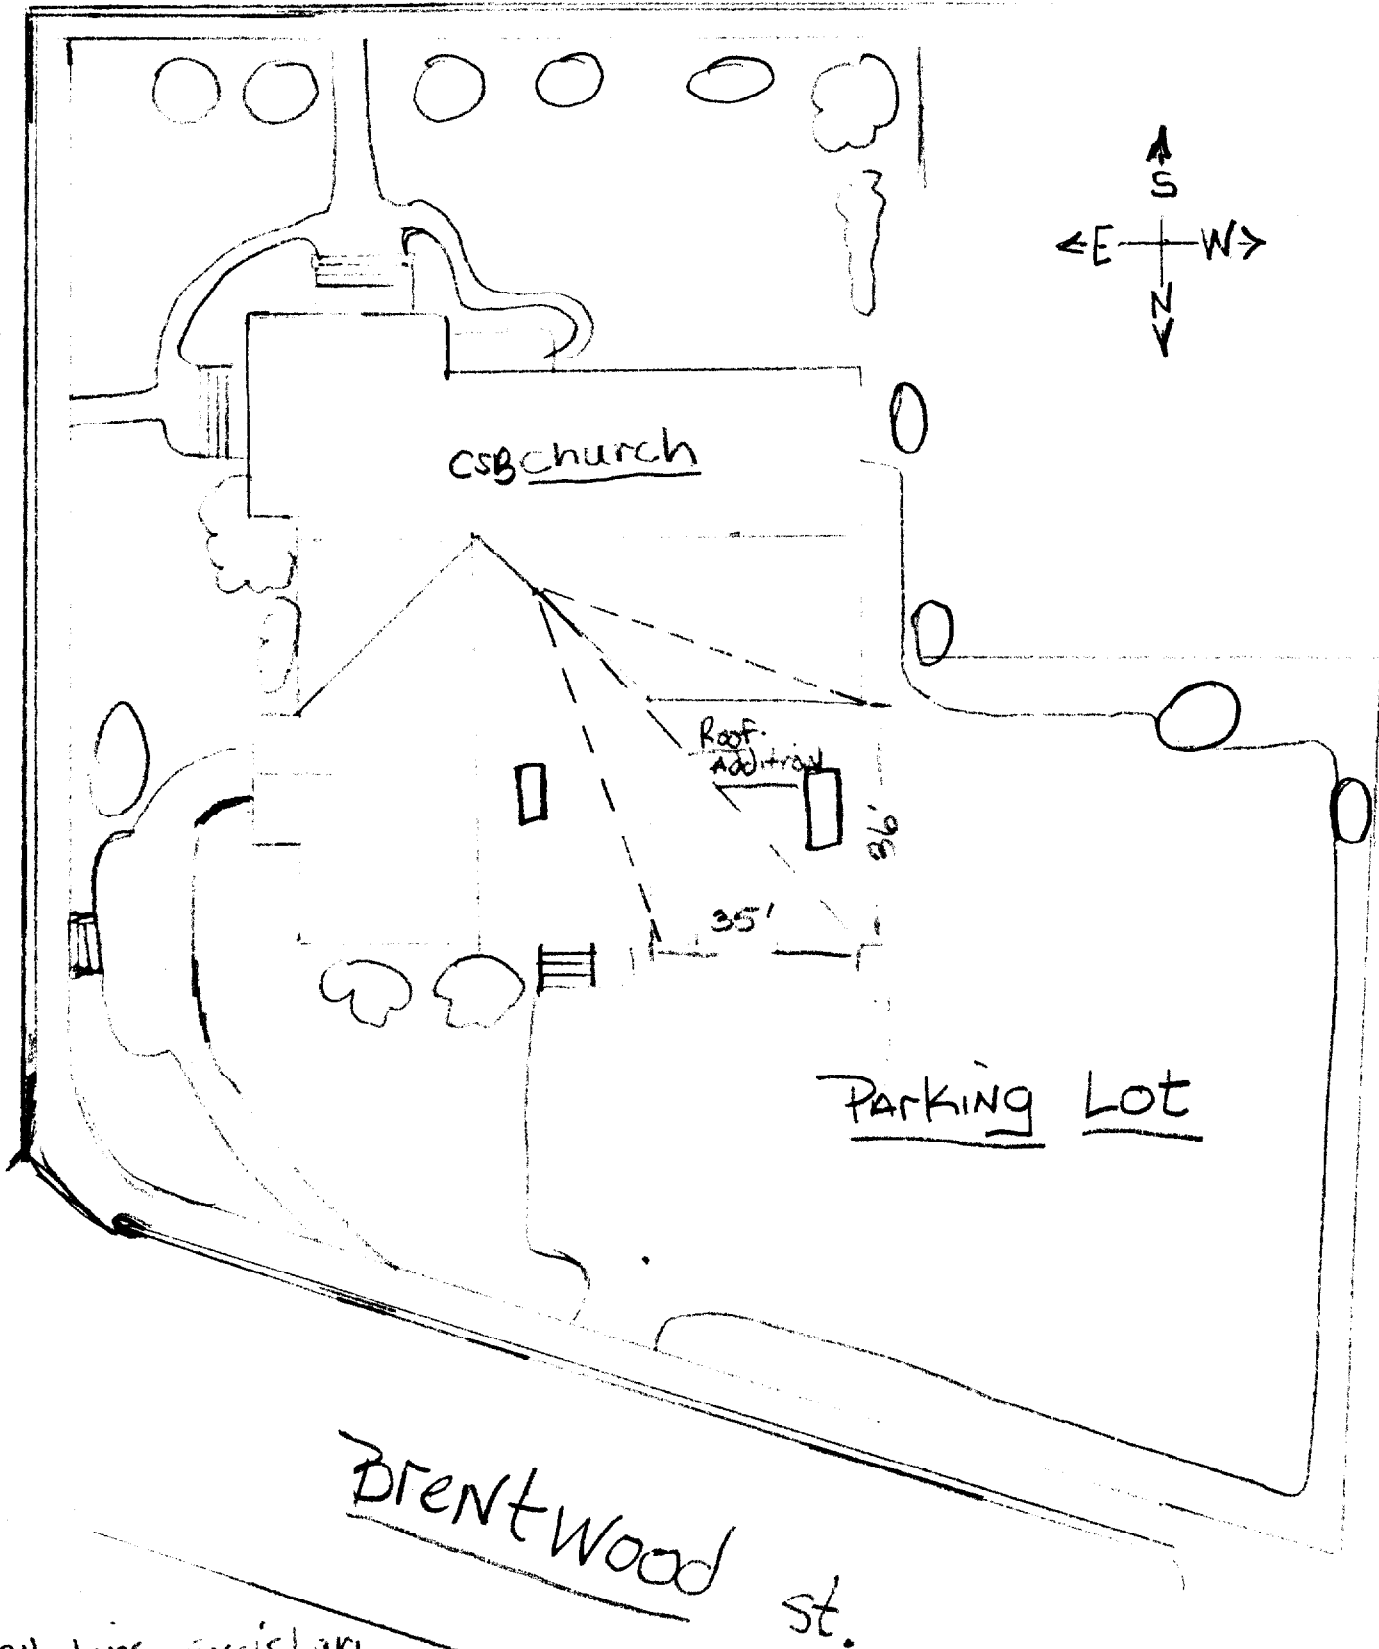 S
E W
N
CSB Church
Roof
Addition
36'
35'
Parking Lot
Brentwood st.